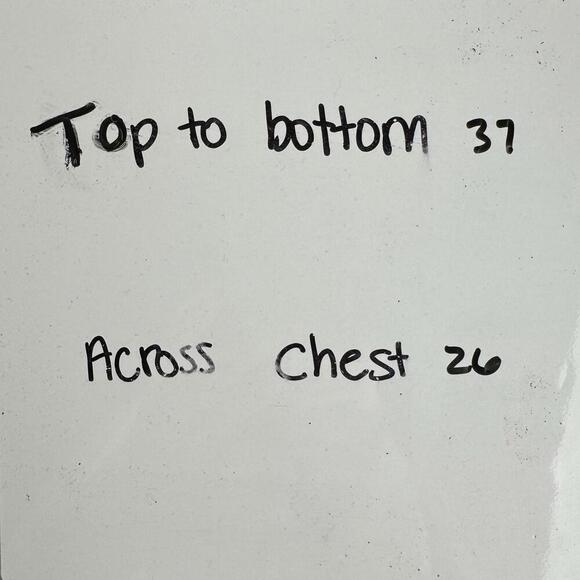 Top to bottom 37
Across Chest 26